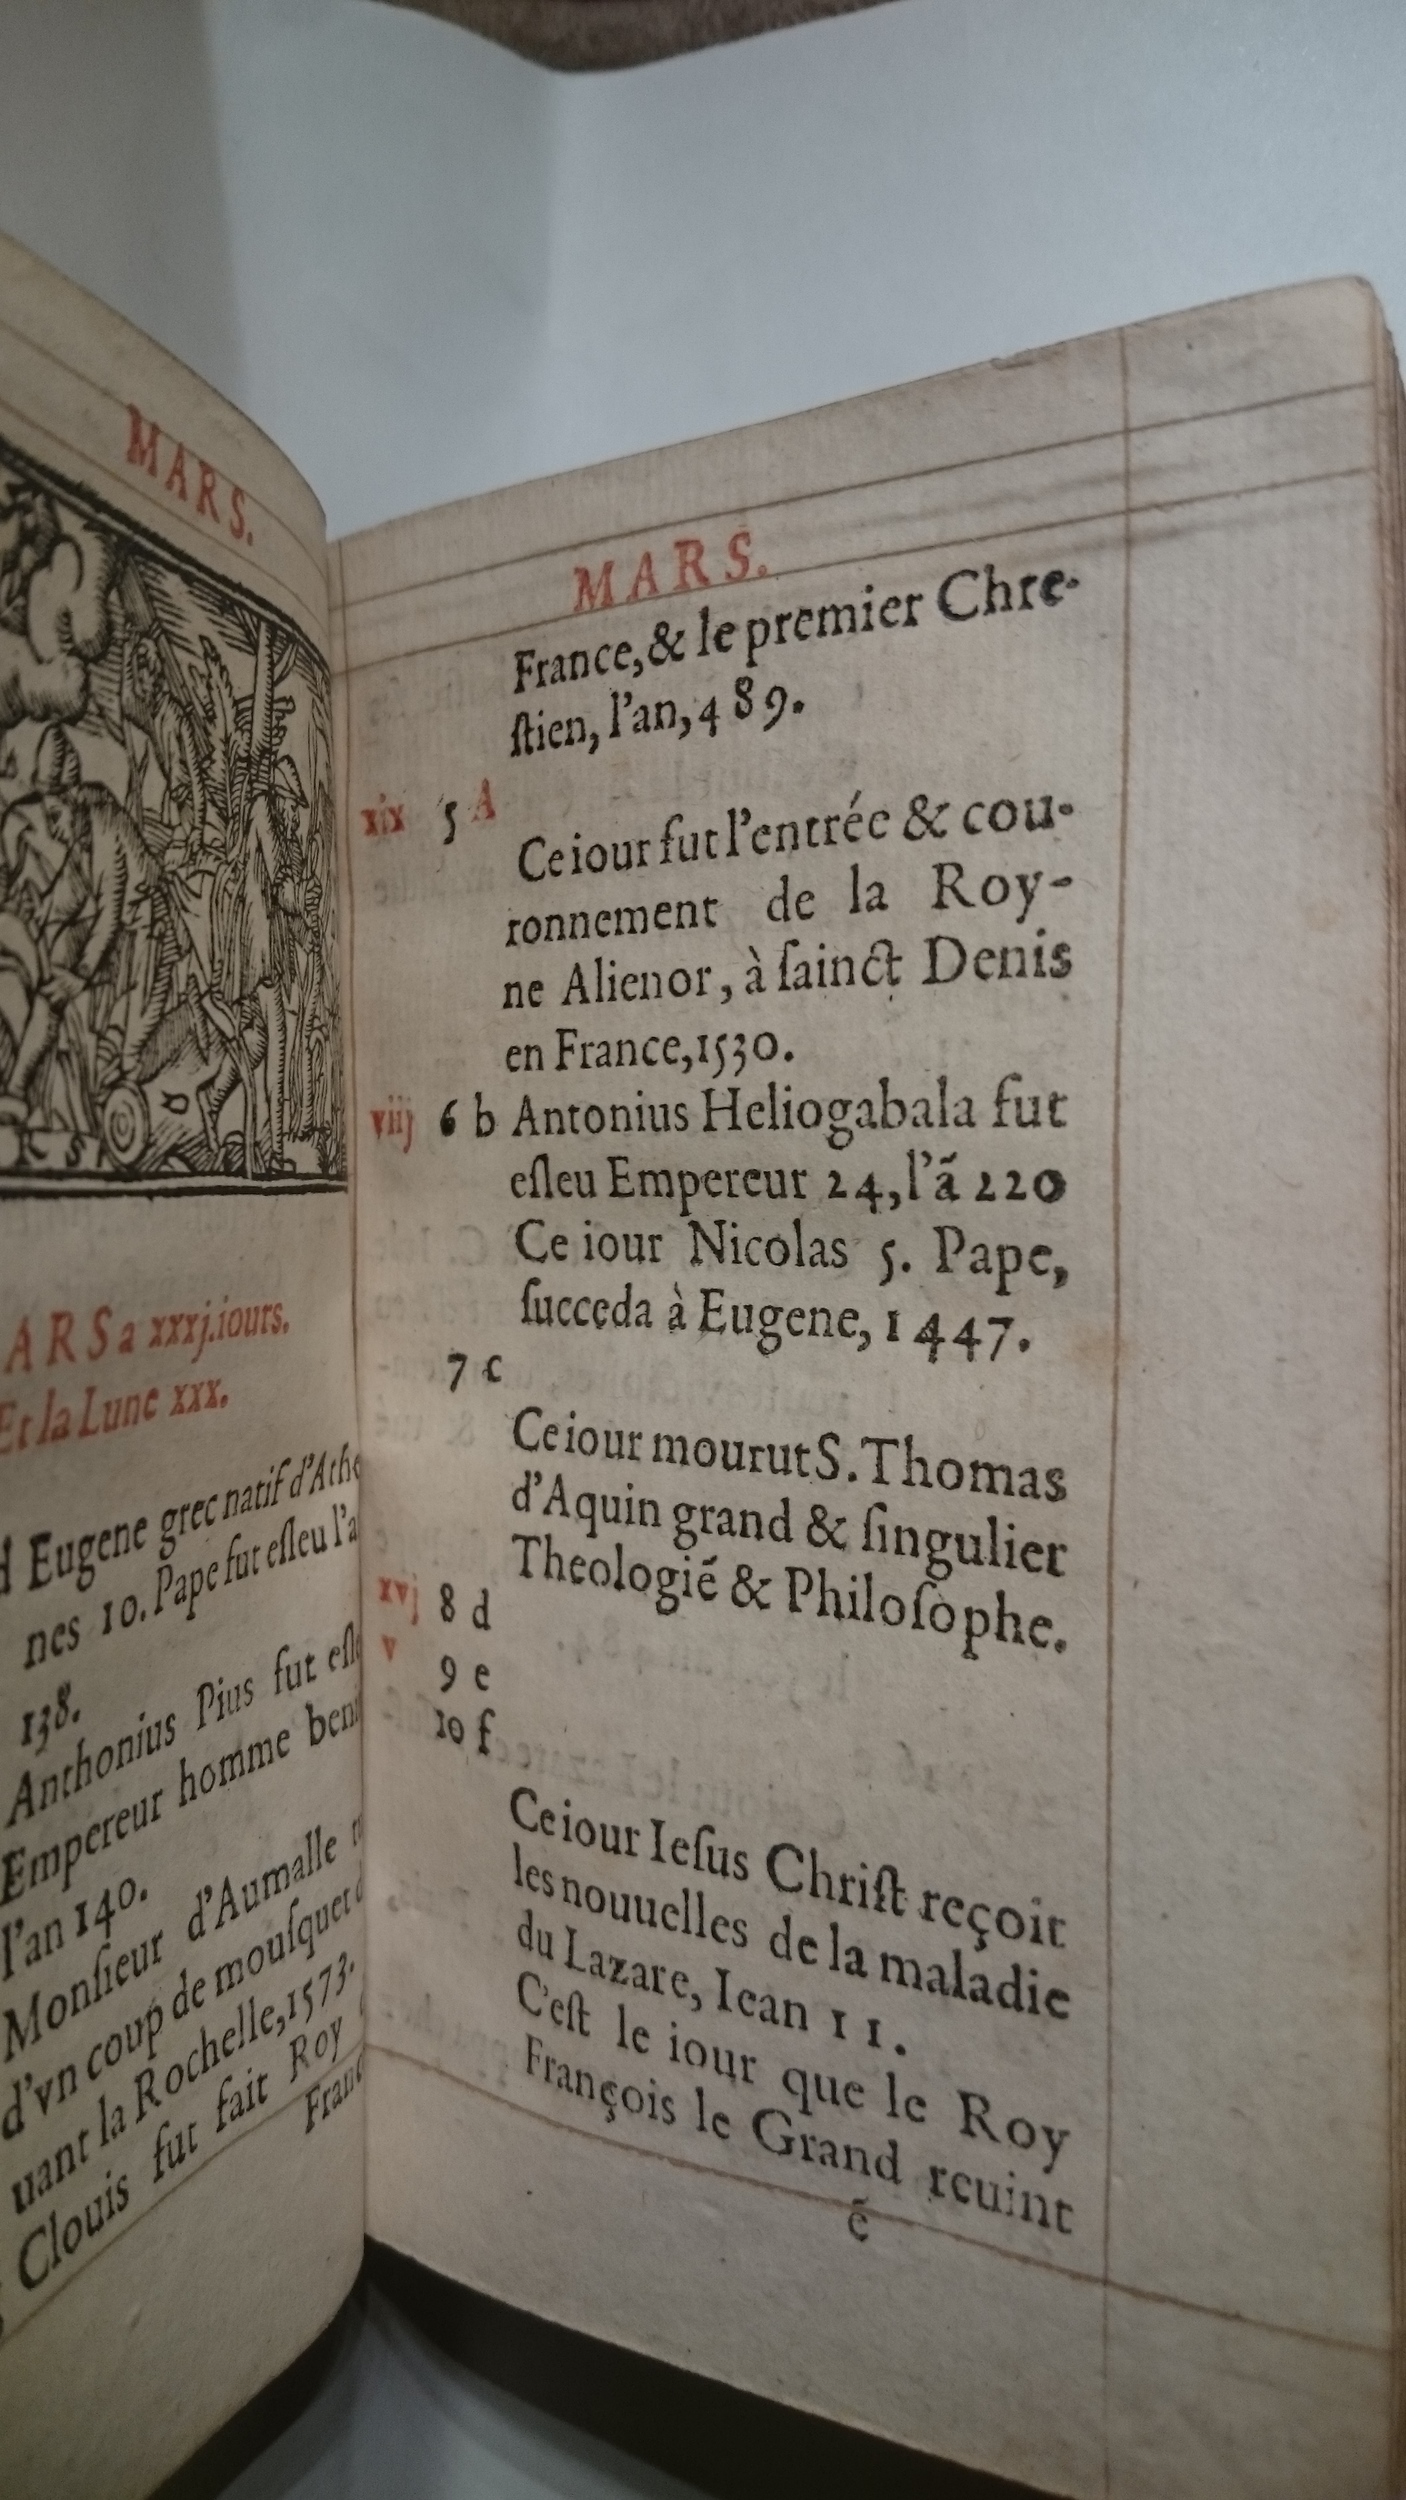 MARS.
ARS a xxxj.iours.
Et la Lune xxx.
Eugene grec natif d'Athe
nes 10. Pape fut eſleu l'a
138.
Anthonius Pius fut eſle
Empereur homme ben
l'an 140.
Monſieur d'Aumalle
d'vn coup de mouſquet
uant la Rochelle, 1573.
Clouis fut fait Roy
Franc
MARS.
France, & le premier Chre-
ſtien, l'an, 489.
xix 5 A
Ce iour fut l'entrée & cou-
ronnement de la Roy-
ne Alienor, à ſainct Denis
en France, 1530.
viij 6 b Antonius Heliogabala fut
eſleu Empereur 24, l'ã 220
Ce iour Nicolas 5. Pape,
ſucceda à Eugene, 1447.
7 c
Ce iour mourut S. Thomas
d'Aquin grand & ſingulier
Theologiẽ & Philoſophe.
xvj 8 d
v 9 e
10 f
Ce iour Ieſus Chriſt reçoit
les nouuelles de la maladie
du Lazare, Iean 11.
C'eſt le iour que le Roy
François le Grand reuint
ẽ